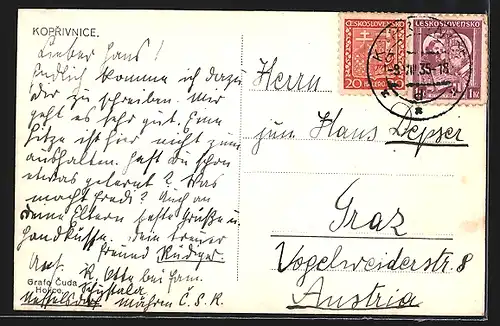 KOPŘIVNICE.
Lieber Hans!
Endlich komme ich dazu
dir zu schreiben. Mir
geht es sehr gut. Eine
Hitze ist hier nicht zum
aushalten. Hast du schon
etwas gelernt? Was
macht Fredi? Auch an
deine Eltern beste Grüße u.
Handküsse. Dein treuer
Freund Rüdiger.
R. Otto bei Fam.
Nesselsdorf Mähren Č. S. R.
Grafo Čuda
Holice.
ČESKOSLOVENSKO
20
ČESKOSLOVENSKO
1 Kč
Herrn
zum Hans
Graz
Vogelweiderstr. 8
Austria